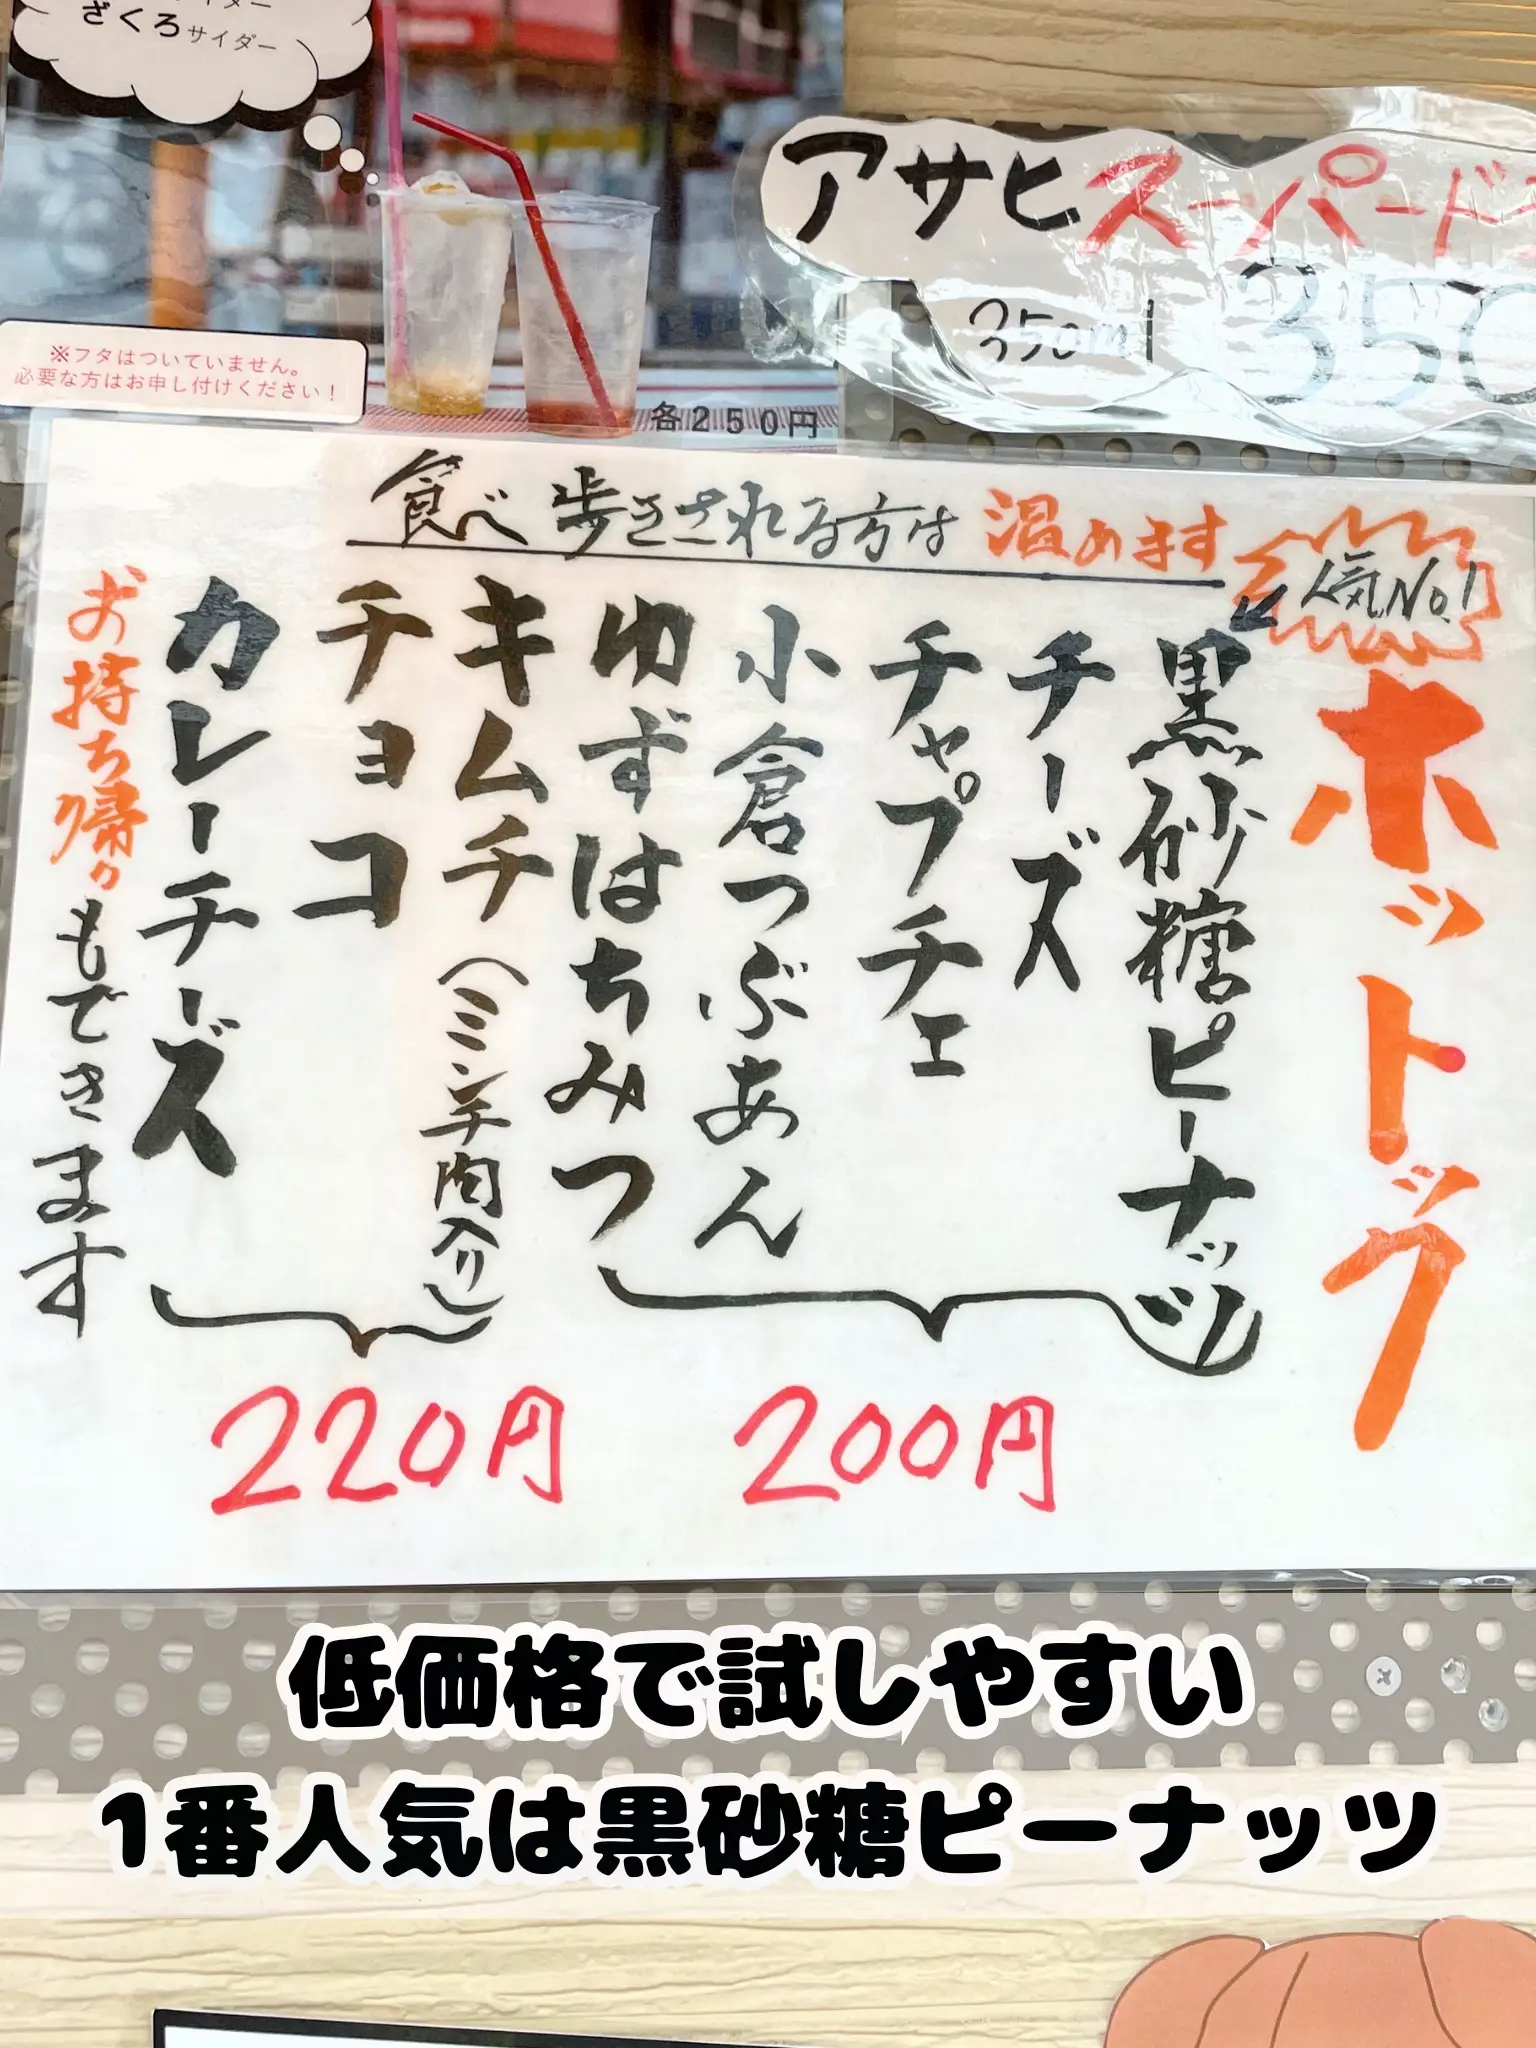 ざくろサイダー
※フタはついていません。
必要な方はお申し付けください！
各250円
アサヒスーパード
350ml
350
食べ歩きされる方は温めます
人気No.1
ホットック
黒砂糖ピーナッツ
チーズ
チャプチェ
小倉つぶあん
ゆずはちみつ
200円
キムチ(ミンチ肉入り)
チョコ
カレーチーズ
220円
お持ち帰りもできます
低価格で試しやすい
1番人気は黒砂糖ピーナッツ